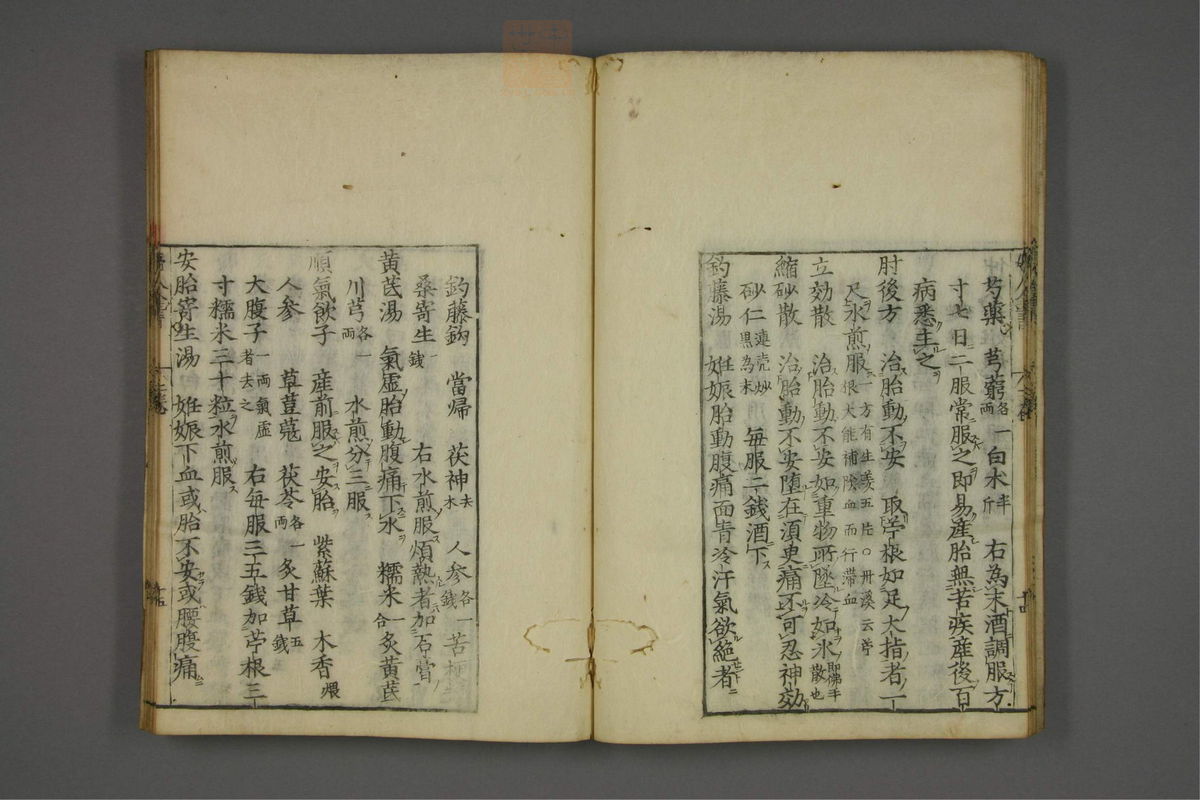 芍藥 芎藭各一兩 白朮半斤 右為末酒調服方
寸七日二服常服之即易産胎無苦疾産後百
病悉主之
肘後方 治胎動不安 取苧根如足大指者一
尺水煎服一方有生姜五片○丹溪云苧根大能補陰血而行滯血
立効散 治胎動不安如重物所墜冷如氷即佛手散也
縮砂散 治胎動不安墮在須臾痛不可忍神効
砂仁連壳炒黒為末 毎服二銭酒下
釣藤湯 妊娠胎動腹痛面青冷汗氣欲絶者
釣藤鈎 當帰 茯神去木 人参各一銭 苦梗
桑寄生一銭 右水煎服煩熱者加石膏
黄茋湯 氣虚胎動腹痛下水 糯米一合 炙黄茋
川芎各一兩 水煎分三服
順氣飲子 産前服之安胎 紫蘇葉 木香煨
人参 草荳蔲 茯苓各一兩 炙甘草五銭
大腹子一兩氣虚者去之 右毎服三五銭加苧根三
寸糯米三十粒水煎服
安胎寄生湯 妊娠下血或胎不安或腰腹痛